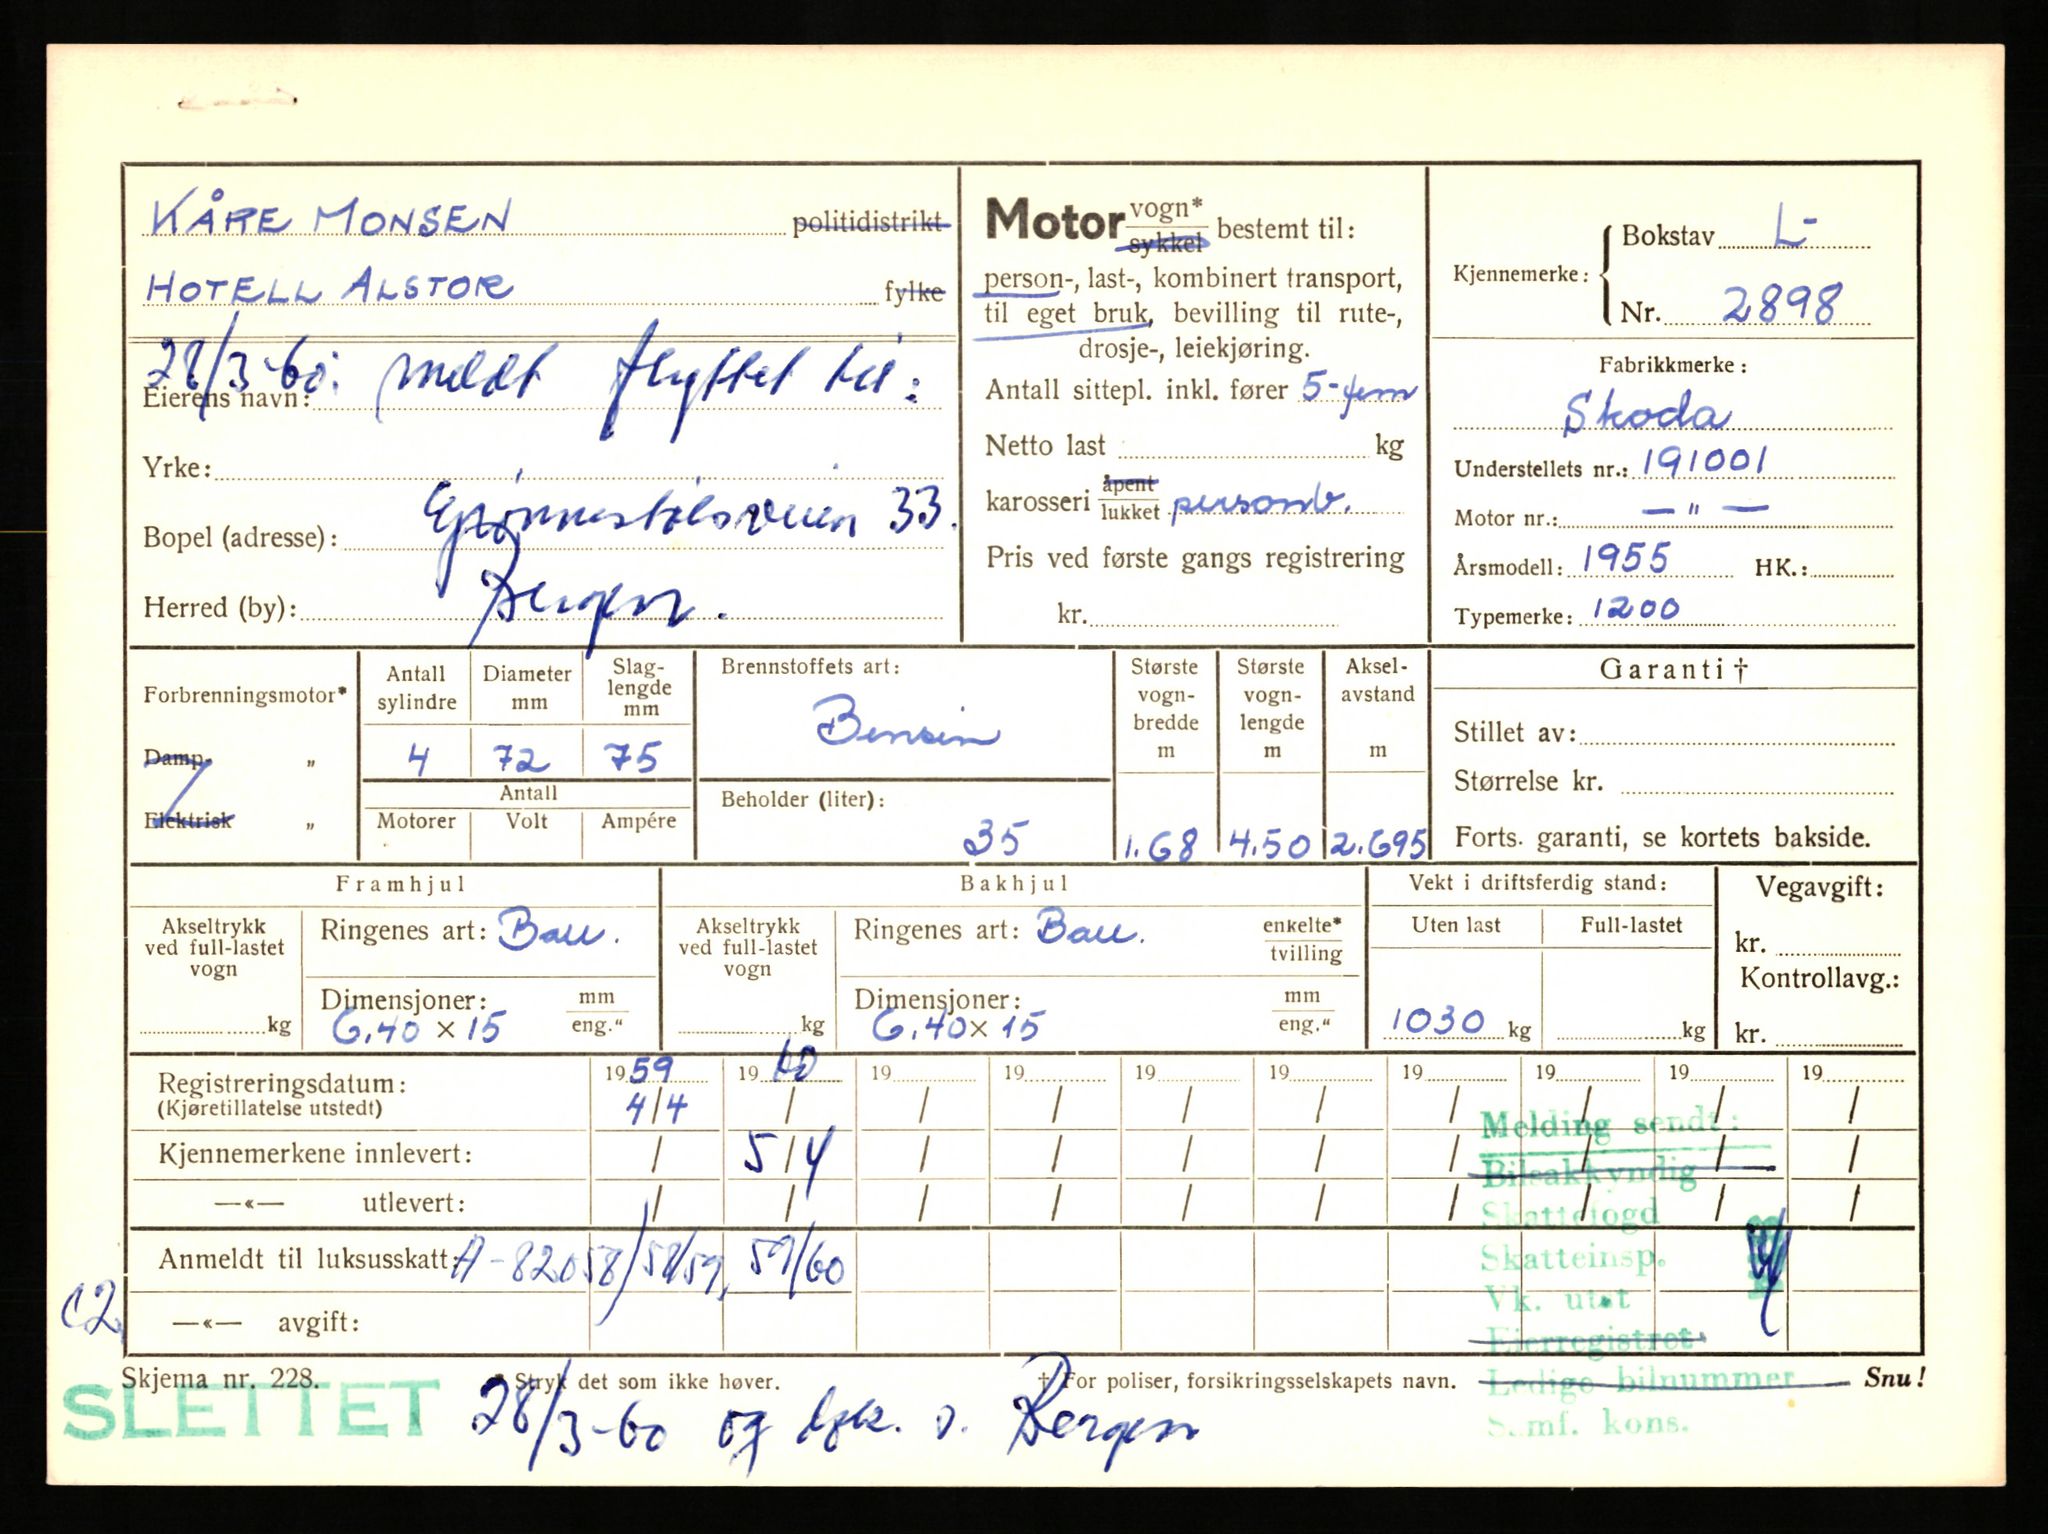 KÅRE MONSEN politidistrikt
HOTELL ALSTOR fylke
28/3-60: meldt flyttet til:
Eierens navn:
Yrke:
Bopel (adresse): Grønnestølsveien 33.
Herred (by): Bergen.
Motor vogn* sykkel bestemt til:
person-, last-, kombinert transport,
til eget bruk, bevilling til rute-,
drosje-, leiekjøring.
Antall sittepl. inkl. fører 5-fem
Netto last kg
karosseri åpent lukket personb.
Pris ved første gangs registrering
kr.
Kjennemerke: Bokstav L-
Nr. 2898
Fabrikkmerke:
Skoda
Understellets nr.: 191001
Motor nr.: — " —
Årsmodell: 1955 HK.:
Typemerke: 1200
Forbrenningsmotor*
Damp- "
Elektrisk "
Antall sylindre
Diameter mm
Slag-lengde mm
4 72 75
Antall
Motorer Volt Ampére
Brennstoffets art:
Bensin
Beholder (liter):
35
Største vogn-bredde m
1.68
Største vogn-lengde m
4.50
Aksel-avstand m
2.695
Garanti †
Stillet av:
Størrelse kr.
Forts. garanti, se kortets bakside.
Framhjul
Akseltrykk ved full-lastet vogn
kg
Ringenes art: Ball.
Dimensjoner: mm eng."
6.40 × 15
Bakhjul
Akseltrykk ved full-lastet vogn
kg
Ringenes art: Ball. enkelte* tvilling
Dimensjoner: mm eng."
6.40 × 15
Vekt i driftsferdig stand:
Uten last Full-lastet
1030 kg kg
Vegavgift:
kr.
Kontrollavg.:
kr.
Registreringsdatum: 1959 1960 19 19 19 19 19 19 19 19
(Kjøretillatelse utstedt) 4/4 / / / / / / / / /
Kjennemerkene innlevert: / 5/4 / / / / / / / /
—«— utlevert: / / / / / / / / / /
Anmeldt til luksusskatt: A-82058/58/59, 59/60
—«— avgift:
C2
Melding sendt:
Bilsakkyndig
Skattefogd
Skatteinsp.
Vk. utst
Eierregistret
Ledige bilnummer
Samf. kons.
Skjema nr. 228. * Stryk det som ikke høver. † For poliser, forsikringsselskapets navn. Snu!
SLETTET
28/3-60 og Bergen